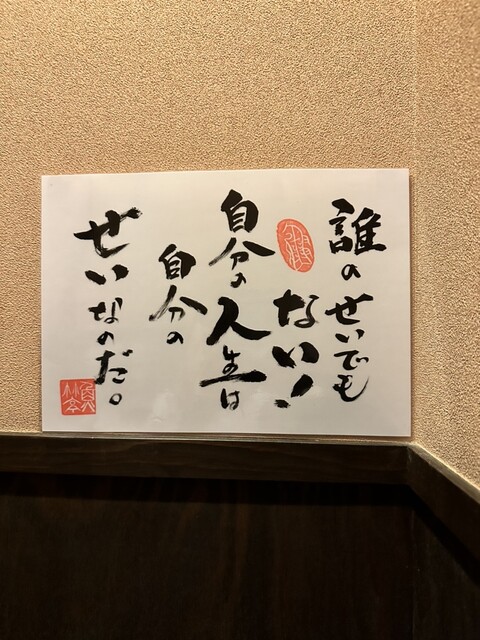 誰のせいでも
ない！
自分の人生は
自分の
せいなのだ。